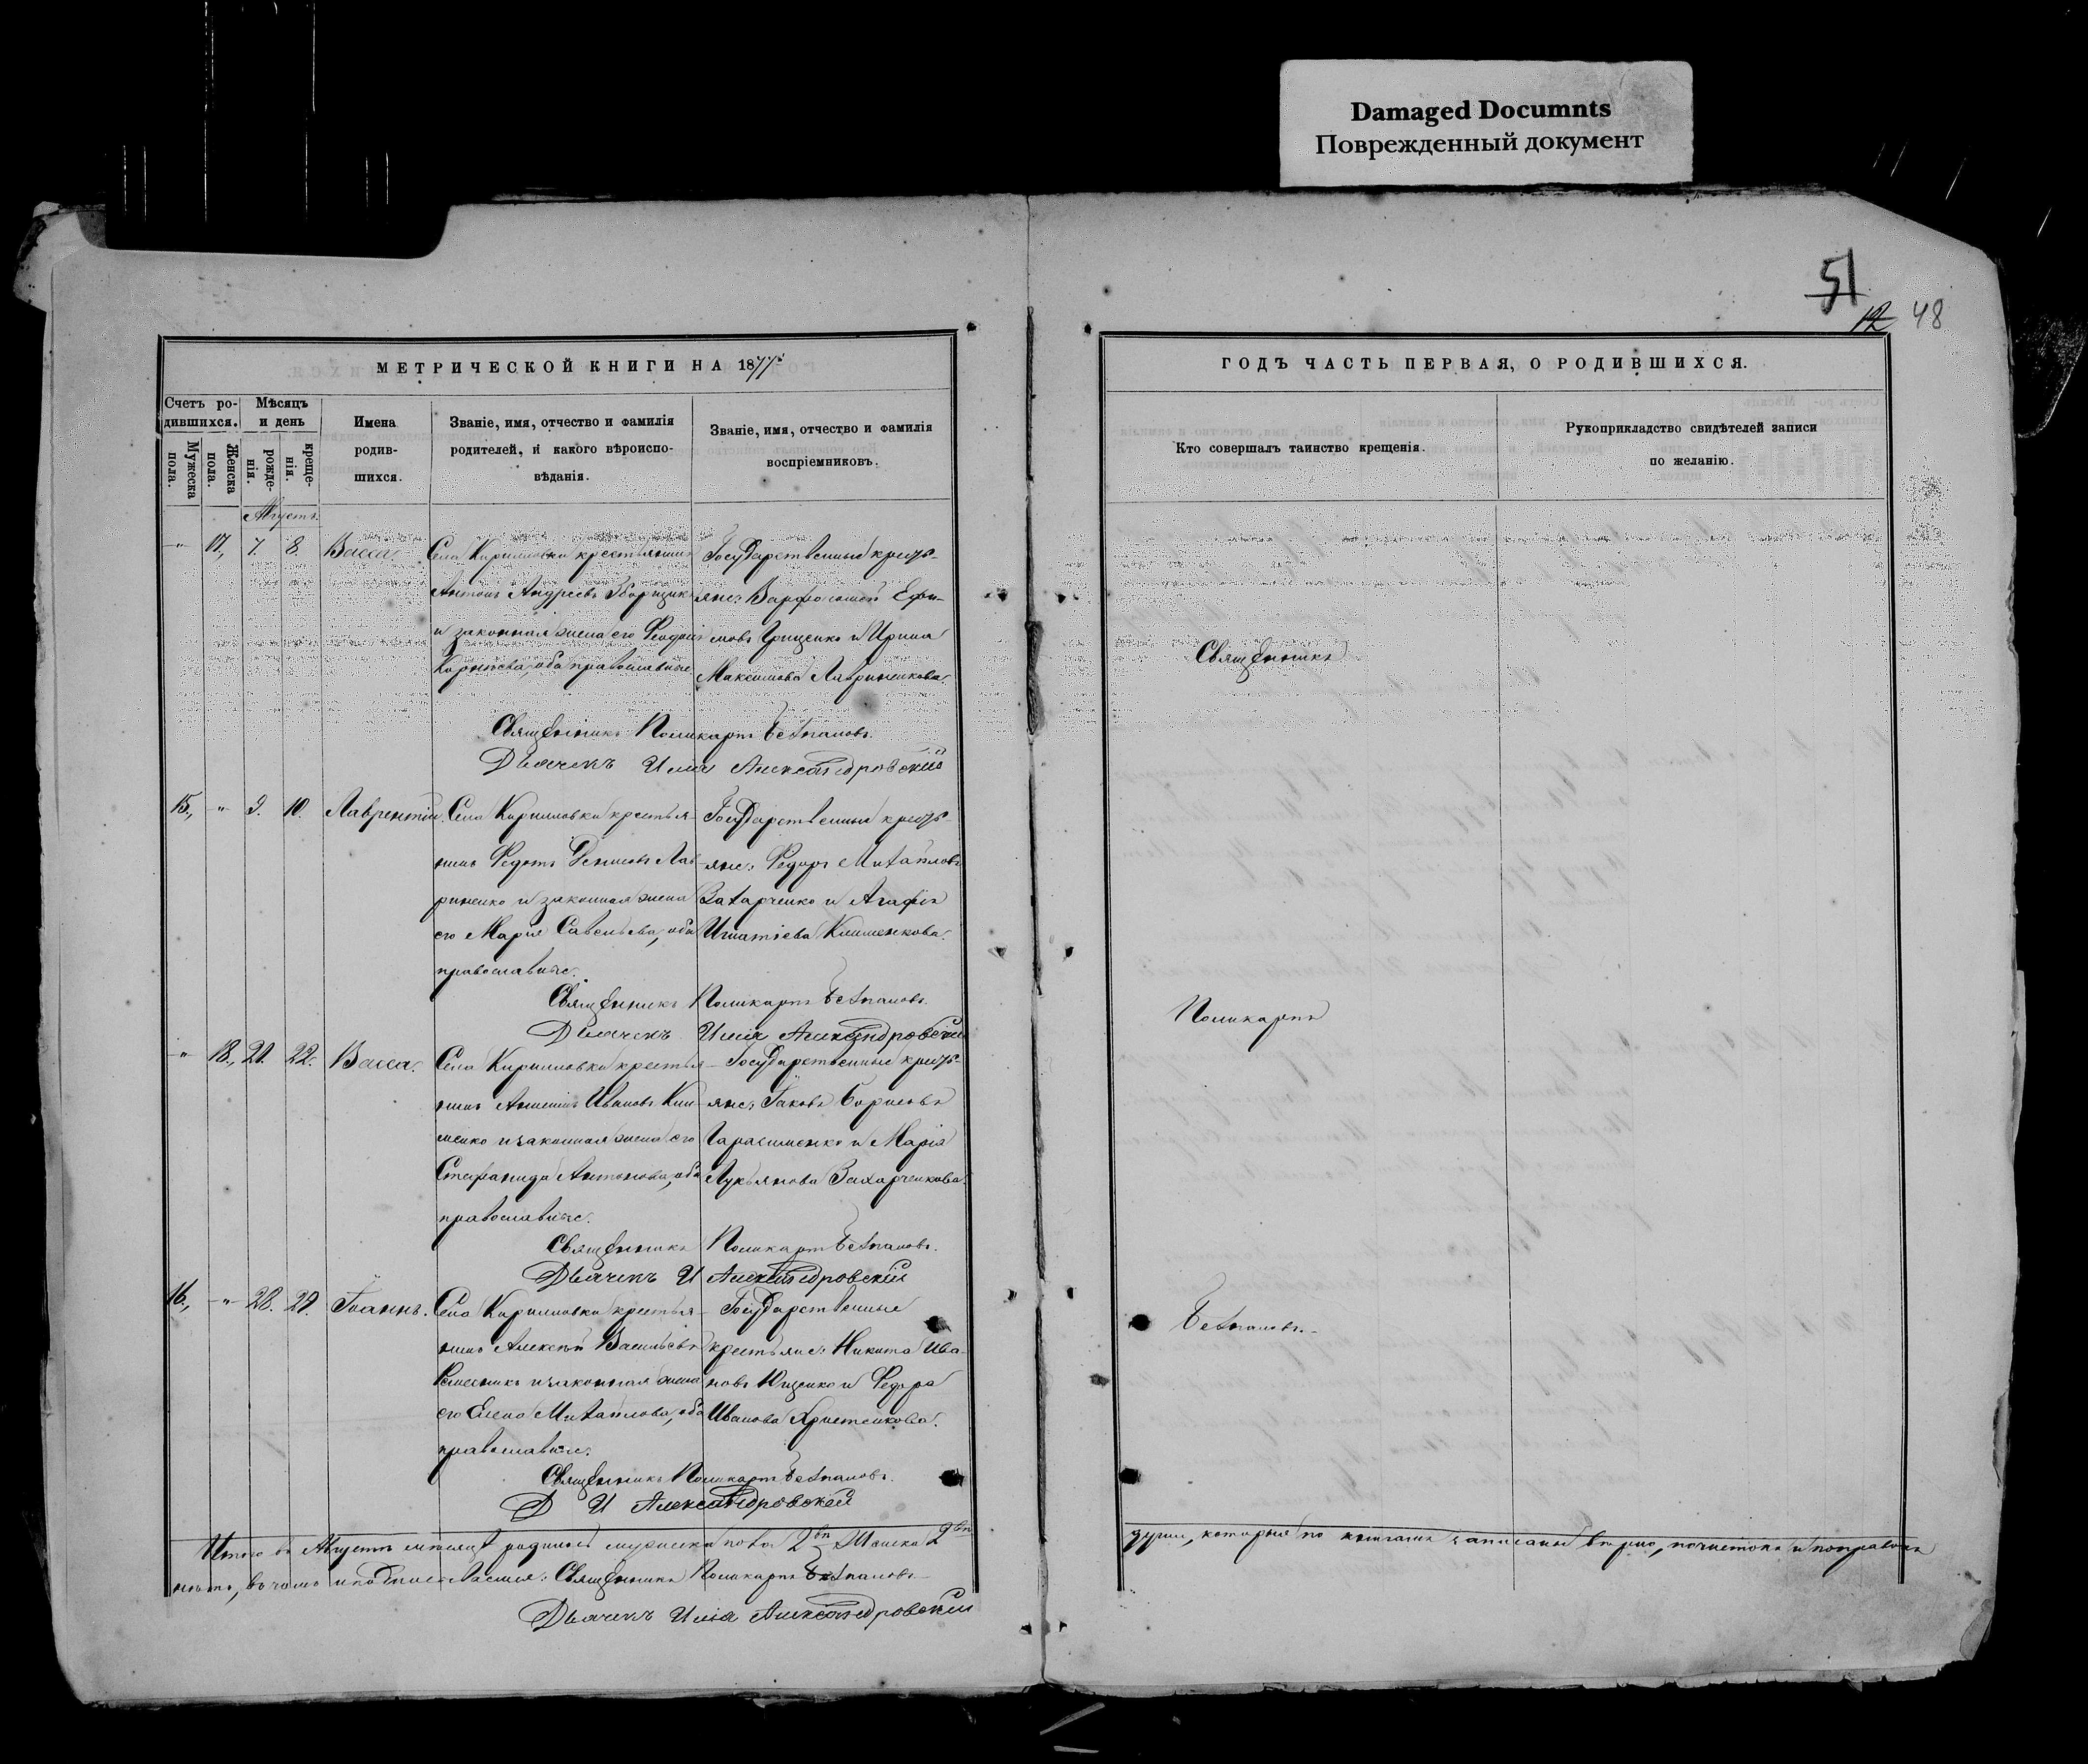 Damaged Documnts
Поврежденный документ
51
12 48
МЕТРИЧЕСКОЙ КНИГИ НА 1877
ГОДЪ ЧАСТЬ ПЕРВАЯ, О РОДИВШИХСЯ.
Счетъ ро-
дившихся.
Мужеска
пола.
Женска
пола.
Мѣсяцъ
и день
рожде-
нія.
креще-
нія.
Имена
родив-
шихся.
Званіе, имя, отчество и фамилія
родителей, и какого вѣроиспо-
вѣданія.
Званіе, имя, отчество и фамилія
воспріемниковъ.
Кто совершалъ таинство крещенія.
Рукоприкладство свидѣтелей записи
по желанію.
Августъ
" 17, 7. 8. Васса.
Села Кириловки крестьянинъ
Антонъ Андреевъ
и законная жена его
Корнѣева, оба православные
Государственные кресть-
яне: Варфоломей Ефи-
мовъ Грищенко и Ирина
Максимова Лавриненкова.
Священникъ Поликарпъ
Дьячекъ Илія Александровскій
15, " 9. 10. Лаврентій.
Села Кириловки крестья-
нинъ Федотъ Денисовъ Лав-
риненко и законная жена
его Марія Савельева, оба
православные.
Государственные кресть-
яне: Федоръ Михайловъ
Захарченко и Агафія
Игнатіева Клименкова.
Священникъ Поликарпъ
Дьячекъ Илія Александровскій
" 18, 21. 22. Васса.
Села Кириловки крестья-
нинъ Ивановъ Кли-
менко и законная жена его
Стефанида Антонова, оба
православные.
Государственные кресть-
яне: Іаковъ Борисовъ
Гарасименко и Марія
Лукьянова Захарченкова.
Священникъ Поликарпъ
Дьячекъ И Александровскій
16, " 28. 29. Іоаннъ.
Села Кириловки крестья-
нинъ Алексѣй Васильевъ
и законная жена
его Елена Михайлова, оба
православные.
Государственные
крестьяне: Никита Ива-
новъ Ищенко и Федора
Иванова Христенкова.
Священникъ Поликарпъ
Д И Александровскій
Священникъ
Поликарпъ
Итого въ Августѣ мѣсяцѣ родилось мужеска пола 2 Женска 2
души, которые по книгамъ записаны вѣрно, почистокъ и поправокъ
нѣтъ, въ чемъ и подписываемся: Священникъ Поликарпъ
Дьячекъ Илія Александровскій